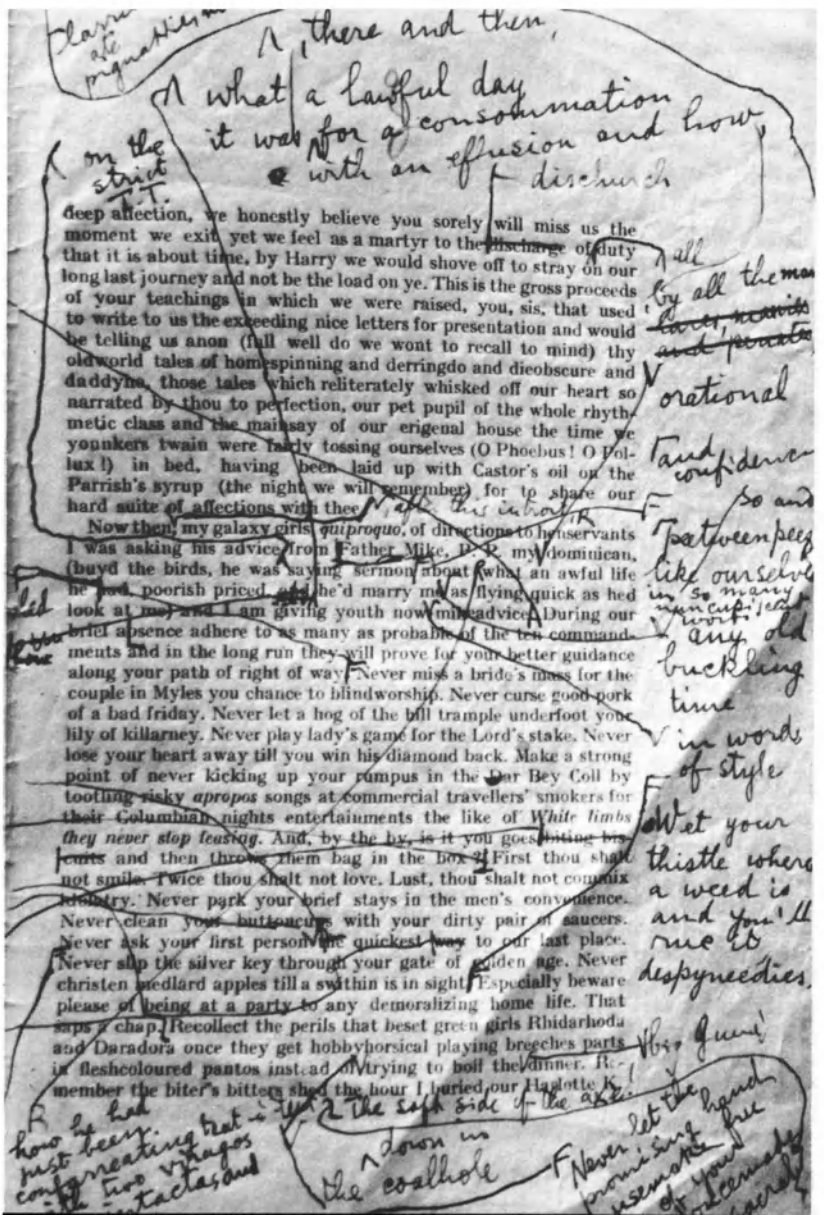 ⋏, there and then,
⋏ what a lawful day
it was for a consommation
⋏ with an effusion and how
⋏ on the
strict
T.T.
dischurch
deep affection, we honestly believe you sorely will miss us the
moment we exit yet we feel as a martyr to the discharge of duty
that it is about time, by Harry we would shove off to stray on our
long last journey and not be the load on ye. This is the gross proceeds
of your teachings in which we were raised, you, sis, that used
to write to us the exceeding nice letters for presentation and would
be telling us anon (full well do we wont to recall to mind) thy
oldworld tales of homespinning and derringdo and dieobscure and
daddyho, those tales which reliterately whisked off our heart so
narrated by thou to perfection, our pet pupil of the whole rhyth-
metic class and the mainsay of our erigenal house the time we
younkers twain were fairly tossing ourselves (O Phoebus! O Pol-
lux!) in bed, having been laid up with Castor's oil on the
Parrish's syrup (the night we will remember) for to share our
hard suite of affections with thee
Now then, my galaxy girls, quiproquo, of directions to henservants
I was asking his advice from Father Mike, P. P. my dominican,
(buyd the birds, he was saying sermon about what an awful life
he had, poorish priced, he'd marry me as flying quick as hed
look at me) and I am giving youth now mikeadvice. During our
brief absence adhere to as many as probable of the ten command-
ments and in the long run they will prove for your better guidance
along your path of right of way. Never miss a bride's mass for the
couple in Myles you chance to blindworship. Never curse good pork
of a bad friday. Never let a hog of the bill trample underfoot your
lily of killarney. Never play lady's game for the Lord's stake. Never
lose your heart away till you win his diamond back. Make a strong
point of never kicking up your rumpus in the Dar Bey Coll by
tootling risky apropos songs at commercial travellers' smokers for
their Columbian nights entertainments the like of White limbs
they never stop teasing. And, by the by, is it you goes biting bis-
cuits and then throws them bag in the box? First thou shalt
not smile. Twice thou shalt not love. Lust, thou shalt not commix
idolatry. Never park your brief stays in the men's convenience.
Never clean your buttoncups with your dirty pair of saucers.
Never ask your first person the quickest way to our last place.
Never slip the silver key through your gate of golden age. Never
christen medlard apples till a swithin is in sight. Especially beware
please of being at a party to any demoralizing home life. That
saps a chap. Recollect the perils that beset green girls Rhidarhoda
and Daradora once they get hobbyhorsical playing breeches parts
in fleshcoloured pantos instead of trying to boil the dinner. Re-
member the biter's bitters shed the hour I buried our Haglotte K.!
⋏ all
by all the
orational
and
confidence
so and
like ourselves
in so many
any old
buckling
time
in words
of style
Wet your
thistle where
a weed is
and you'll
rue it
despyneedies.
the soft side of the axe!
⋏ down in
the coalhole
how he had
just been
confarreating
with two viragos
Never let the
promising hand
usemake free
of your